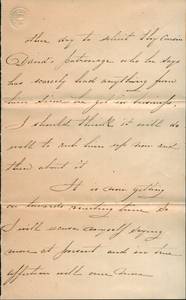 other day to solicit thy cousin
David's patronage who he says
has scarcely had anything from
him since we got in business.
I should think it will do
well to rub him up now and
then about it
It is now getting
on towards meeting time so
I will excuse myself saying
more at present and in true
affection with our dear